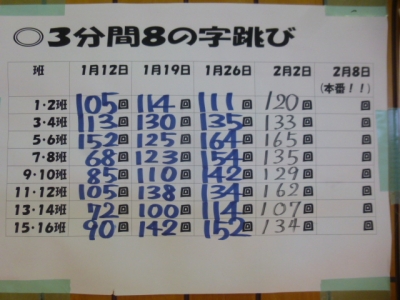 ○3分間8の字跳び
班 1月12日 1月19日 1月26日 2月2日 2月8日
(本番!!)
1・2班 105回 114回 111回 120回 回
3・4班 113回 130回 135回 133回 回
5・6班 152回 125回 164回 165回 回
7・8班 68回 123回 154回 135回 回
9・10班 85回 110回 142回 129回 回
11・12班 105回 138回 134回 162回 回
13・14班 72回 100回 114回 107回 回
15・16班 90回 142回 152回 134回 回